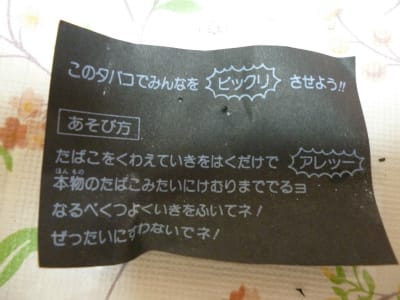 このタバコでみんなをビックリさせよう!!
あそび方
たばこをくわえていきをはくだけでアレッー
本物のたばこみたいにけむりまででるヨ
なるべくつよくいきをふいてネ!
ぜったいにすわないでネ!